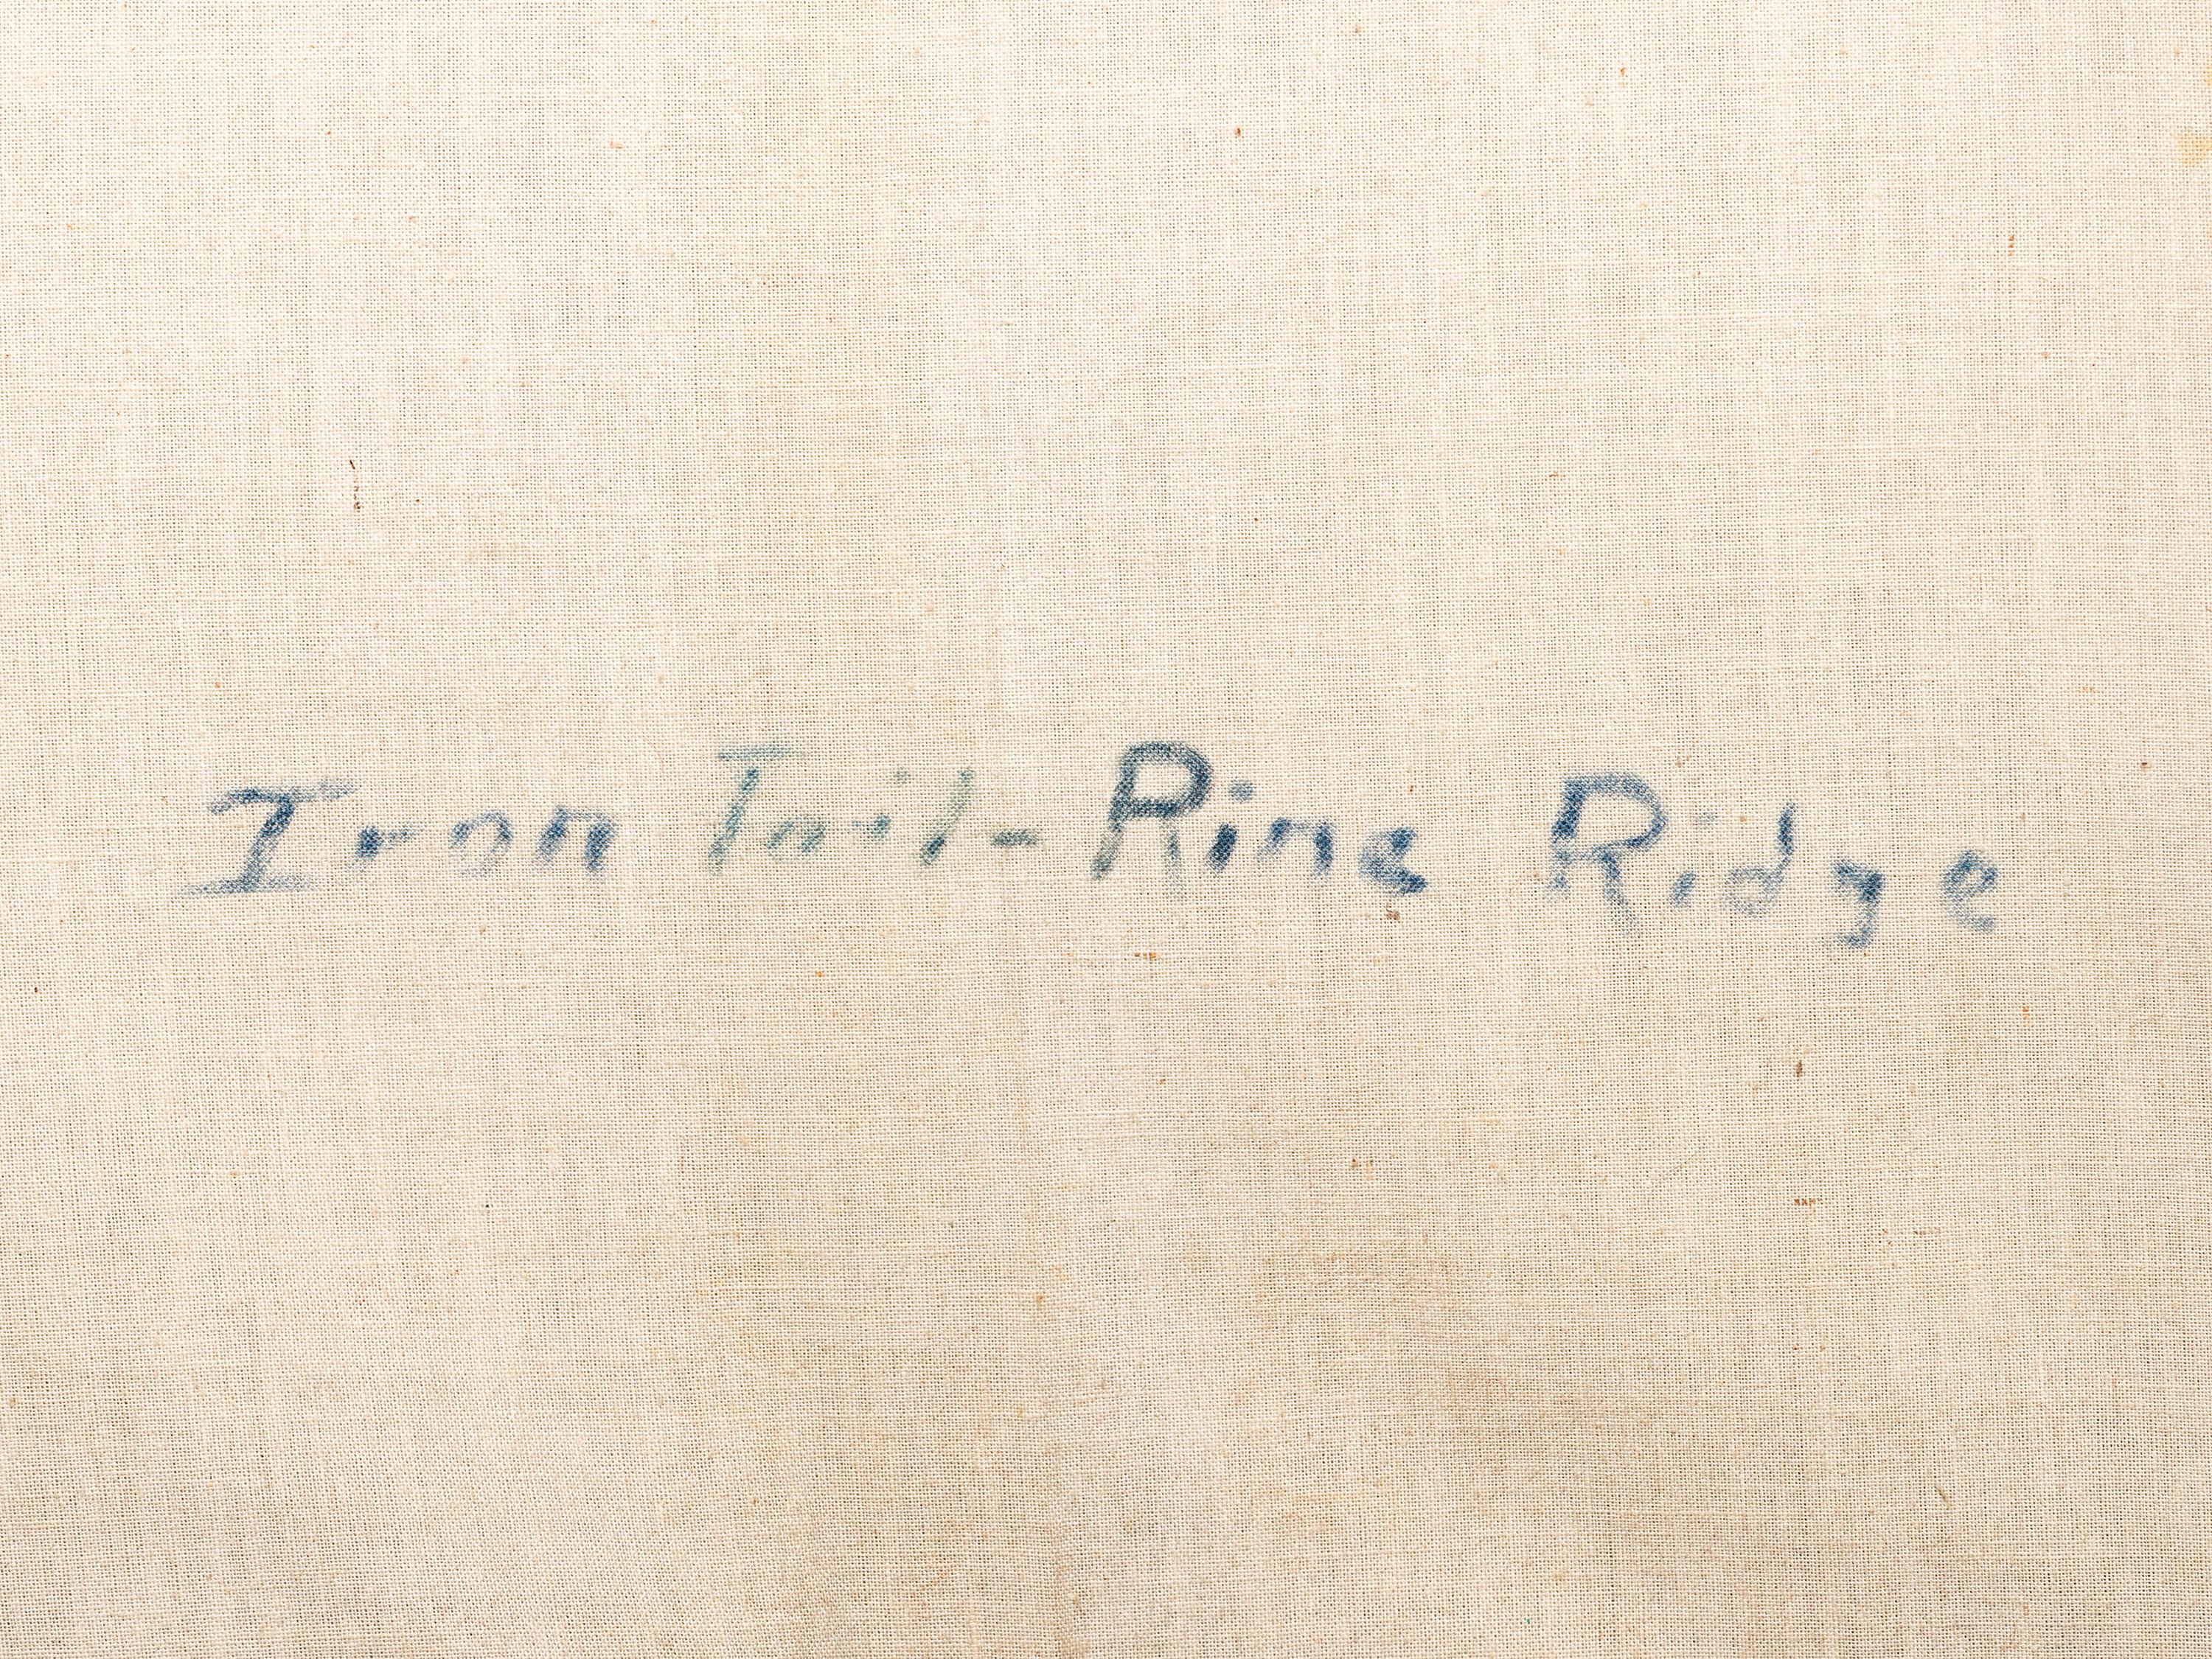 Iron Tail- Rine Ridge